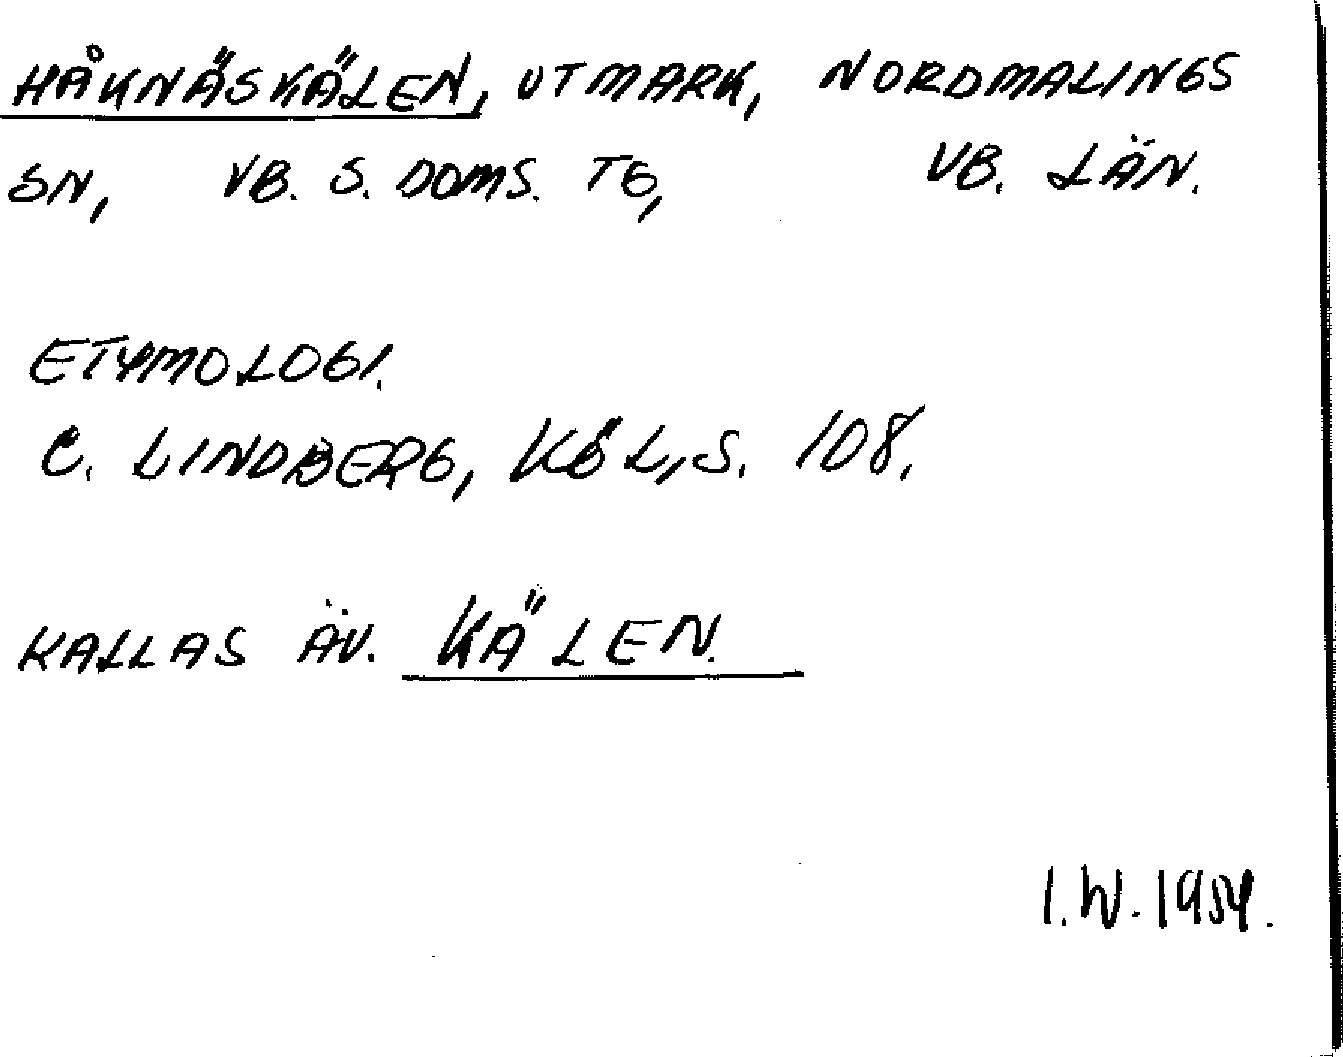 HÅKNÄSKÄLEN, UTMARK, NORDMALINGS
SN, VB. S. DOMS. TG, VB. LÄN.
ETYMOLOGI.
C. LINDBERG, KÖL, S. 108.
KALLAS ÄV. KÄLEN.
I.W. 1954.